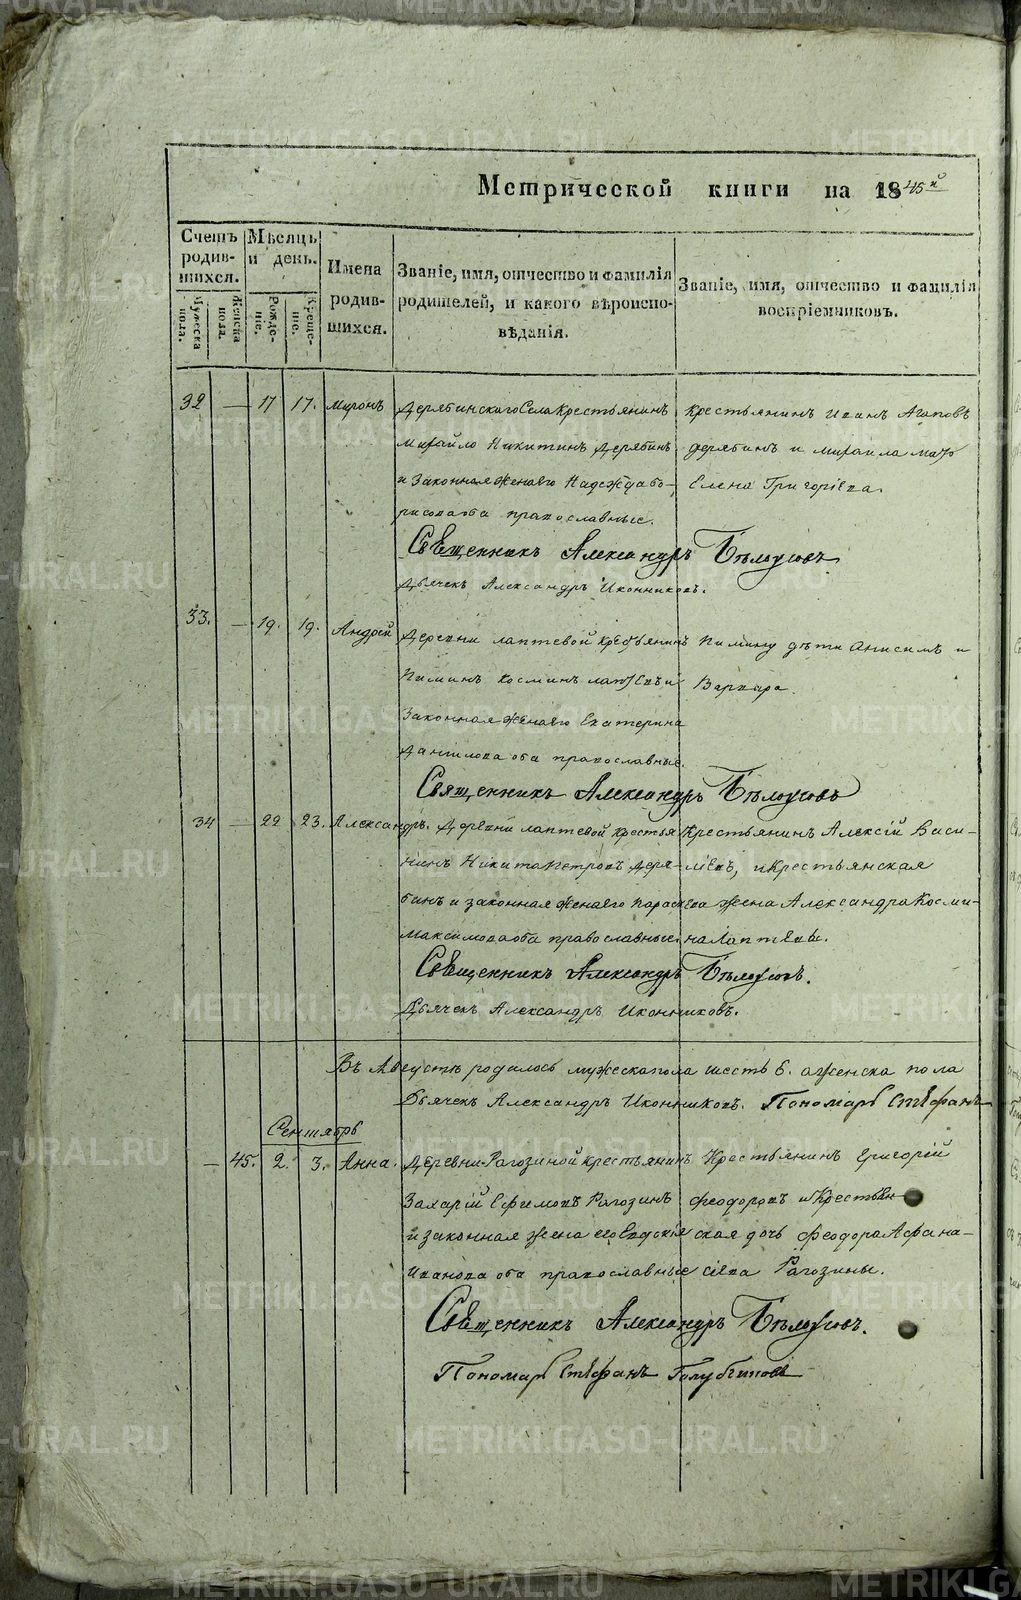 Метрической книги на 1845й
Счетъ родив-шихся.
Мужеска пола.
Женска пола.
Мѣсяцъ и день.
Рожде-ніе.
Креще-ніе.
Имена родив-шихся.
Званіе, имя, отчество и фамилія
родителей, и какого вѣроиспо-
вѣданія.
Званіе, имя, отчество и фамилія
воспріемниковъ.
32 — 17 17. Миронъ
Дерябинскаго Села Крестьянинъ
Михайло Никитинъ Дерябинъ
и Законная Жена его Надежда бо-
рисова оба православные.
Крестьянинъ Иванъ Агаповъ
дерябинъ и Михаила
Елена Григоріева.
Священникъ Александръ Бѣлоусовъ
Дьячекъ Александръ Иконниковъ.
33. — 19. 19. Андрей
Деревни лаптевой крестьянинъ
Пиминъ Косминъ лаптевъ и
Законная Жена его Екатерина
Данилова оба православные.
Пимину дѣти Анисимъ и
Варвара.
Священникъ Александръ Бѣлоусовъ
34 — 22 23. Александръ.
Деревни лаптевой крестья
нинъ Никита Петровъ Деря-
бинъ и законная жена его Параскева
Максимова оба православные.
Крестьянинъ Алексій Васи-
ліевъ, и Крестьянская
жена Александра Косми-
на Лаптевы.
Священникъ Александръ Бѣлоусовъ.
Дьячекъ Александръ Иконниковъ.
Въ Августѣ родилось мужеска пола шесть 6. а женска пола
Дьячекъ Александръ Иконниковъ. Пономарь Стефанъ
Сентябрь
— 45. 2. 3. Анна.
Деревни Рагозиной крестьянинъ
Захарій Ефимовъ Рагозинъ
и законная жена его Евдокія
Иванова оба православные
Крестьянинъ Григорій
Феодоровъ и Крестьян
ская дочь Феодора Афана-
сіева Рагозины.
Священникъ Александръ Бѣлоусовъ.
Пономарь Стефанъ Голубчиковъ
METRIKI.GASO-URAL.RU